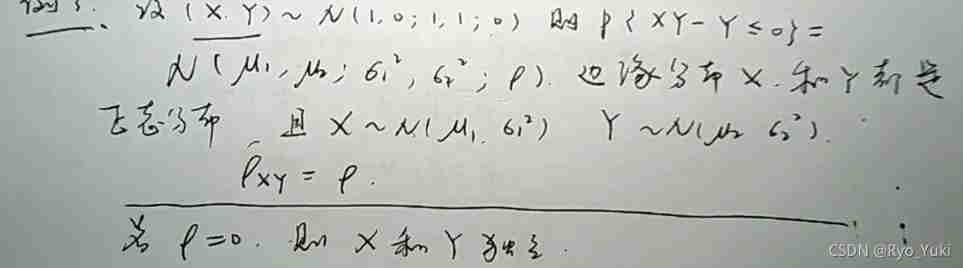 例3. 设 (X. Y) ~ N(1, 0; 1, 1; 0) 则 P{XY-Y≤0}=
N(μ₁, μ₂; σ₁², σ₂²; ρ). 边缘分布 X. 和 Y 都是
正态分布 且 X ~ N(μ₁, σ₁²) Y ~ N(μ₂ σ₂²).
ρXY = ρ.
若 ρ=0. 则 X 和 Y 独立.
CSDN @Ryo_Yuki